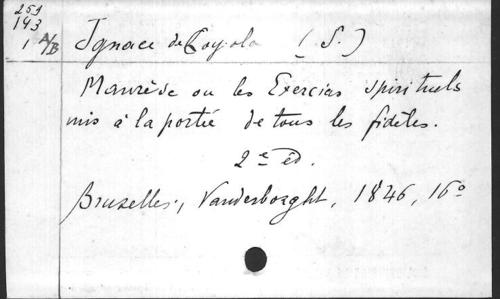 251
143
1 A/B
Ignace de Loyola (S.)
Manrèse ou les Exercices spirituels
mis à la portée de tous les fidèles.
2e éd.
Bruxelles, Vanderborght, 1846, 16o